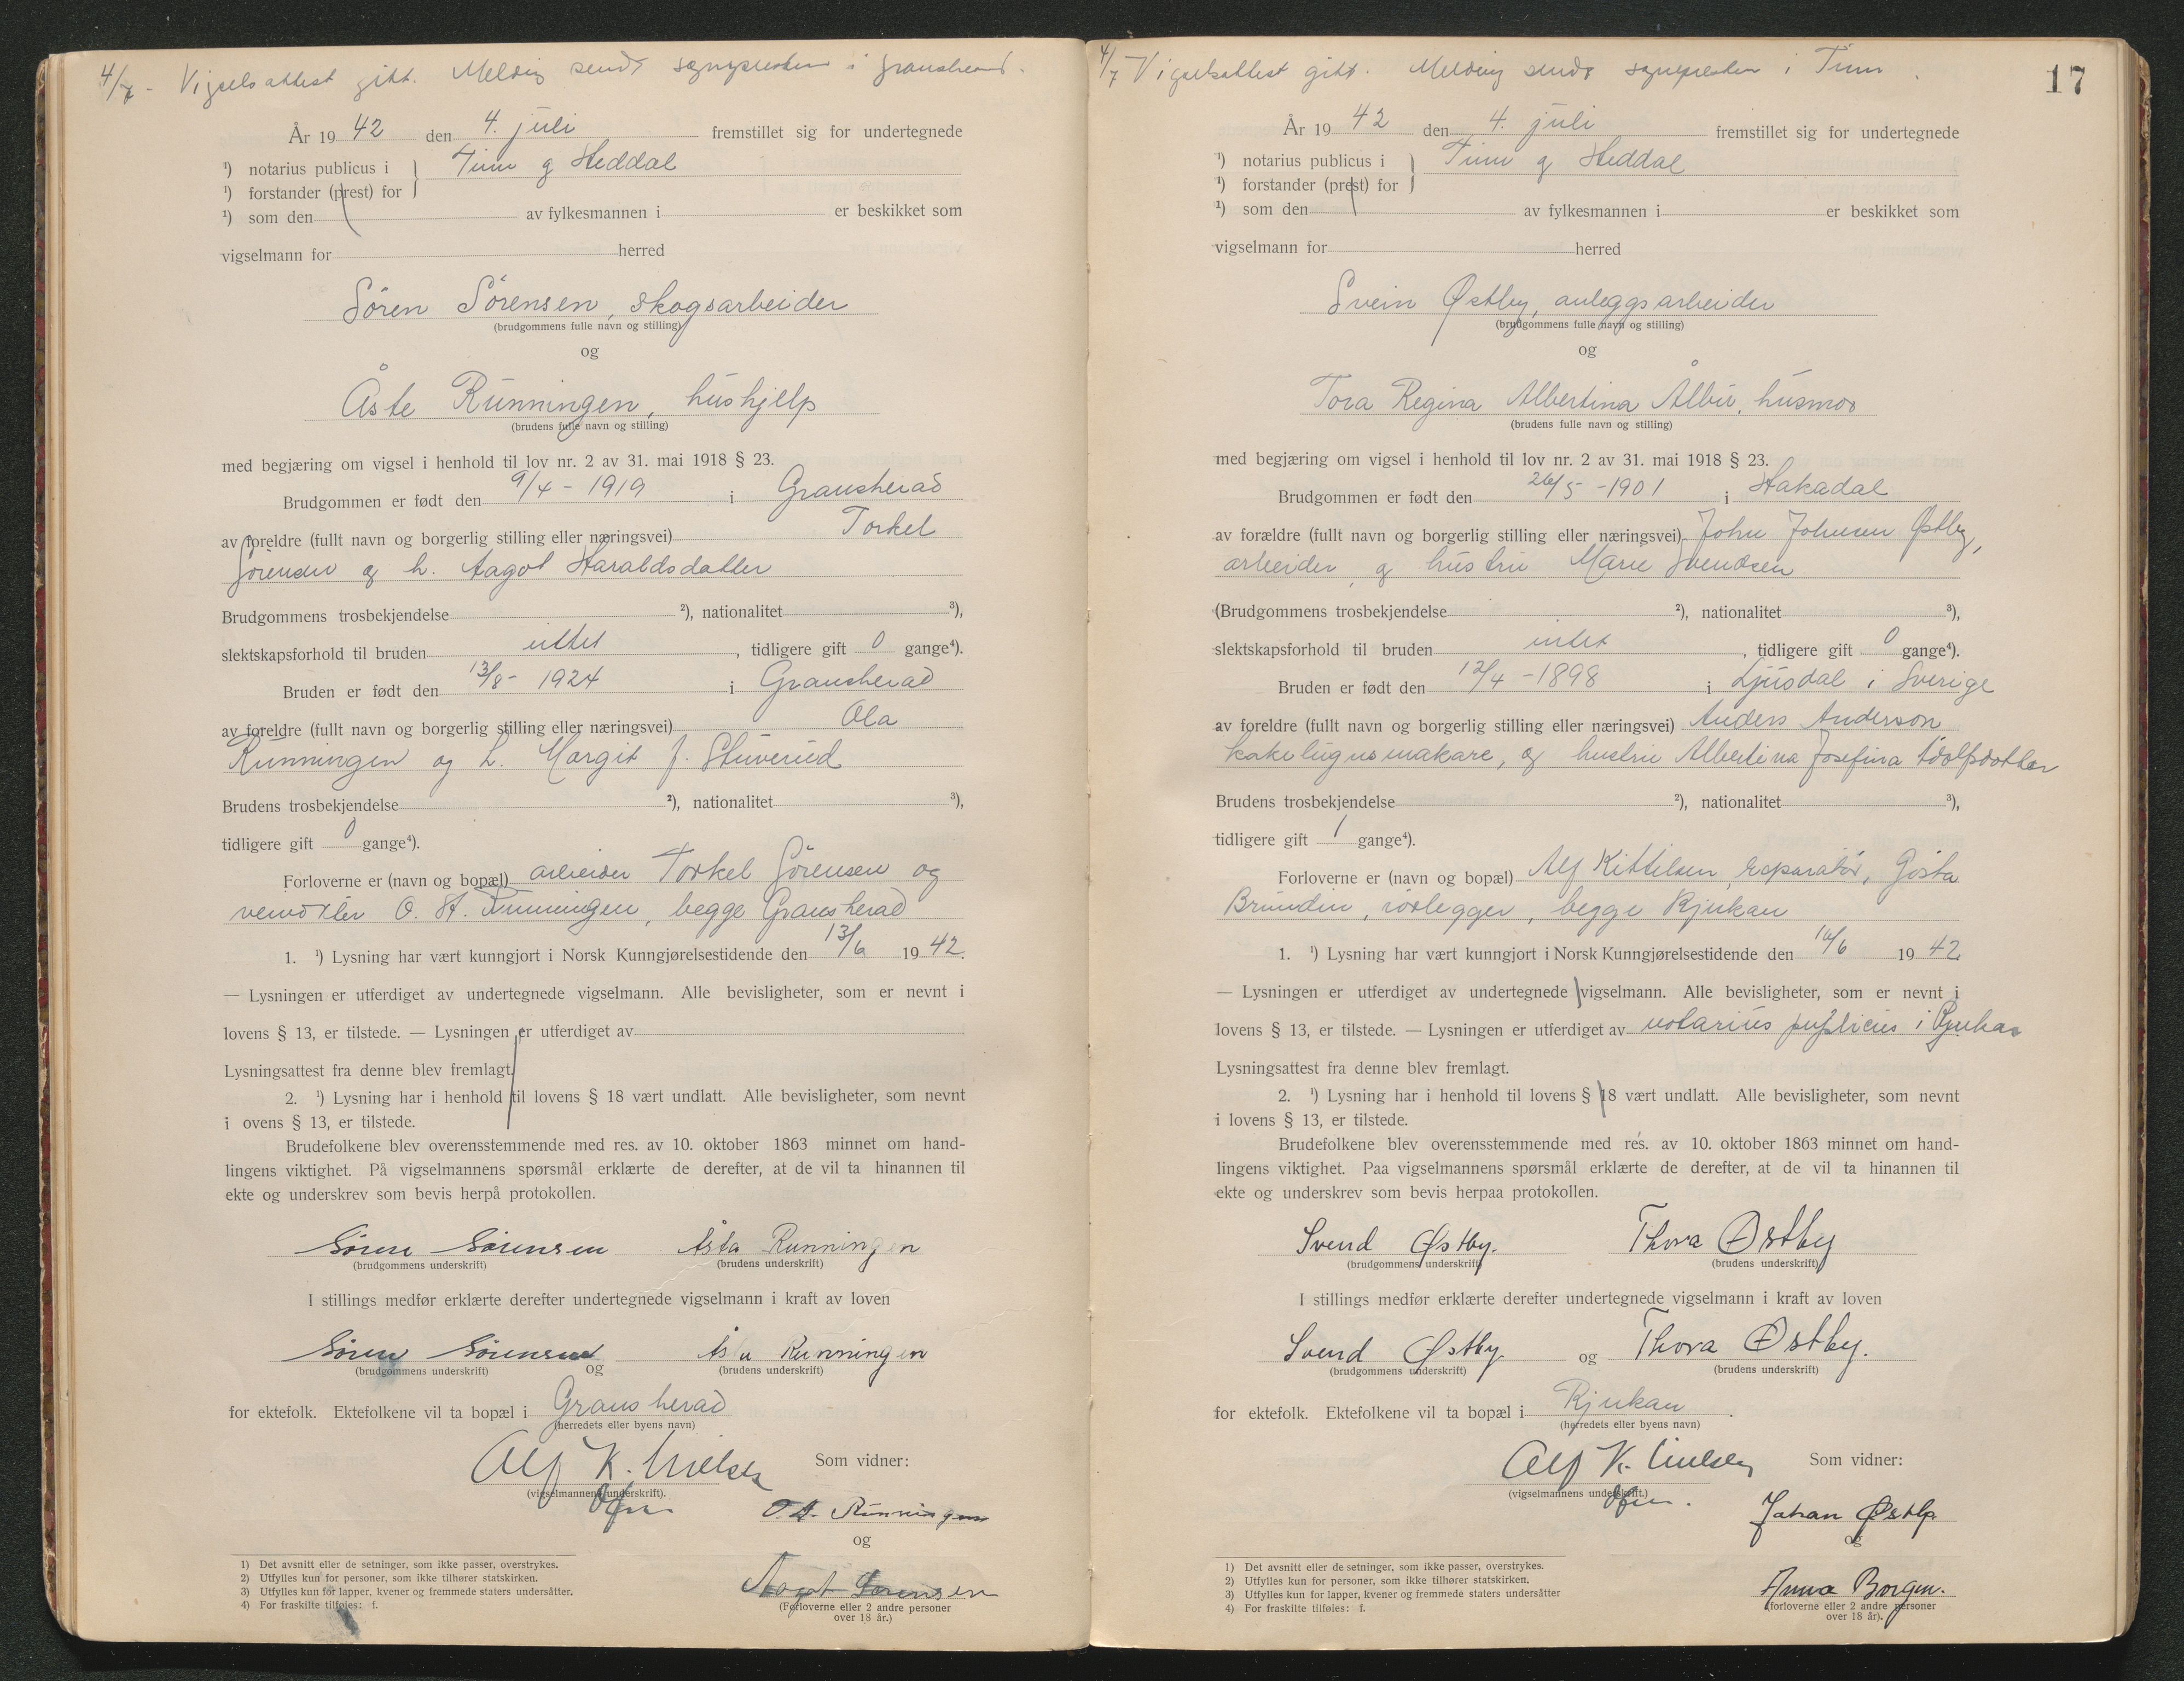 4/7 - Vigselsattest gitt. Melding sendt sognepresten i Gransherad.
År 19 42 den 4. juli fremstillet sig for undertegnede
¹) notarius publicus i } Tinn og Heddal
¹) forstander (prest) for
¹) som den av fylkesmannen i er beskikket som
vigselmann for herred
Sören Sörensen, skogsarbeider
(brudgommens fulle navn og stilling)
og
Åste Rünningen, hüshjelp
(brudens fulle navn og stilling)
med begjæring om vigsel i henhold til lov nr. 2 av 31. mai 1918 § 23.
Brudgommen er født den 9/4 - 1919 i Gransherad
av foreldre (fullt navn og borgerlig stilling eller næringsvei) Torkel
Sörensen og h. Aagot Haraldsdatter
Brudgommens trosbekjendelse ²), nationalitet ³),
slektskapsforhold til bruden intet, tidligere gift 0 gange⁴).
Bruden er født den 13/8 - 1924 i Gransherad
av foreldre (fullt navn og borgerlig stilling eller næringsvei) Ola
Rünningen og h. Margit f. Stüverüd
Brudens trosbekjendelse ²), nationalitet ³),
tidligere gift 0 gange⁴).
Forloverne er (navn og bopæl) arbeider Torkel Sörensen og
O. H. Rünningen, begge Gransherad
1. ¹) Lysning har vært kunngjort i Norsk Kunngjørelsestidende den 13/6 19 42.
— Lysningen er utferdiget av undertegnede vigselmann. Alle bevisligheter, som er nevnt i
lovens § 13, er tilstede. — Lysningen er utferdiget av
Lysningsattest fra denne blev fremlagt.
2. ¹) Lysning har i henhold til lovens § 18 vært undlatt. Alle bevisligheter, som nevnt
i ovens § 13, er tilstede.
Brudefolkene blev overensstemmende med res. av 10. oktober 1863 minnet om hand-
lingens viktighet. På vigselmannens spørsmål erklærte de derefter, at de vil ta hinannen til
ekte og underskrev som bevis herpå protokollen.
Sören Sörensen Åsta Runningen
(brudgommens underskrift) (brudens underskrift)
I stillings medfør erklærte derefter undertegnede vigselmann i kraft av loven
Sören Sörensen og Runningen
(brudgommens underskrift) (brudens underskrift)
for ektefolk. Ektefolkene vil ta bopæl i Gransherad
(herredets eller byens navn)
Alf K. Nielsen Som vidner:
(vigselmannens underskrift).
O. H. Rünningen
og
Aagot Sörensen
(Forloverne eller 2 andre personer
over 18 år.)
1) Det avsnitt eller de setninger, som ikke passer, overstrykes.
2) Utfylles kun for personer, som ikke tilhører statskirken.
3) Utfylles kun for lapper, kvener og fremmede staters undersåtter.
4) For fraskilte tilføies: f.
17
4/7 - Vigselsattest gitt. Melding sendt sognepresten i Tinn.
År 19 42 den 4. juli fremstillet sig for undertegnede
¹) notarius publicus i } Tinn og Heddal
¹) forstander (prest) for
¹) som den av fylkesmannen i er beskikket som
vigselmann for herred
Svein Østby, anleggsarbeider
(brudgommens fulle navn og stilling)
og
Tora Regina Albertina Ålbü, hüsmor
(brudens fulle navn og stilling)
med begjæring om vigsel i henhold til lov nr. 2 av 31. mai 1918 § 23.
Brudgommen er født den 26/5 - 1901 i Hakadal
av forældre (fullt navn og borgerlig stilling eller næringsvei) John Johnsen Østby,
arbeider, og hüstrü Marie Svendsen
(Brudgommens trosbekjendelse ²), nationalitet ³),
slektskapsforhold til bruden intet, tidligere gift 0 gange⁴).
Bruden er født den 12/4 - 1898 i Ljüsdal i Sverige
av foreldre (fullt navn og borgerlig stilling eller næringsvei) Anders Anderson
kakelugnsmakare, og hustrü Albertina Josefina Adolfsdotter
Brudens trosbekjendelse ²), nationalitet ³),
tidligere gift 1 gange⁴).
Forloverne er (navn og bopæl) Alf Kittilsen, reparatör, Gösta
Bründin, rörlegger, begge Rjukan
1. ¹) Lysning har vært kunngjort i Norsk Kunngjørelsestidende den 16/6 19 42.
— Lysningen er utferdiget av undertegnede vigselmann. Alle bevisligheter, som er nevnt i
lovens § 13, er tilstede. — Lysningen er utferdiget av notariüs püblicüs i Rjukan
Lysningsattest fra denne blev fremlagt.
2. ¹) Lysning har i henhold til lovens § 18 vært undlatt. Alle bevisligheter, som nevnt
i lovens § 13, er tilstede.
Brudefolkene blev overensstemmende med res. av 10. oktober 1863 minnet om hand-
lingens viktighet. Paa vigselmannens spørsmål erklærte de derefter, at de vil ta hinannen til
ekte og underskrev som bevis herpaa protokollen.
Svend Østby. Thora Østby
(brudgommens underskrift) (brudens underskrift)
I stillings medfør erklærte derefter undertegnede vigselmann i kraft av loven
Svend Østby og Thora Østby.
(brudgommens underskrift) (brudens underskrift)
for ektefolk. Ektefolkene vil ta bopæl i Rjukan.
(herredets eller byens navn)
Alf K. Nielsen Som vidner:
(vigselmannens underskrift.)
Johan Østby
og
Anna Borgen.
(forloverne eller 2 andre personer
over 18 år).
1) Det avsnitt eller de setninger, som ikke passer, overstrykes.
2) Utfylles kun for personer, som ikke tilhører statskirken.
3) Utfylles kun for lapper, kvener og fremmede staters undersåtter
4) For fraskilte tilføies: f.